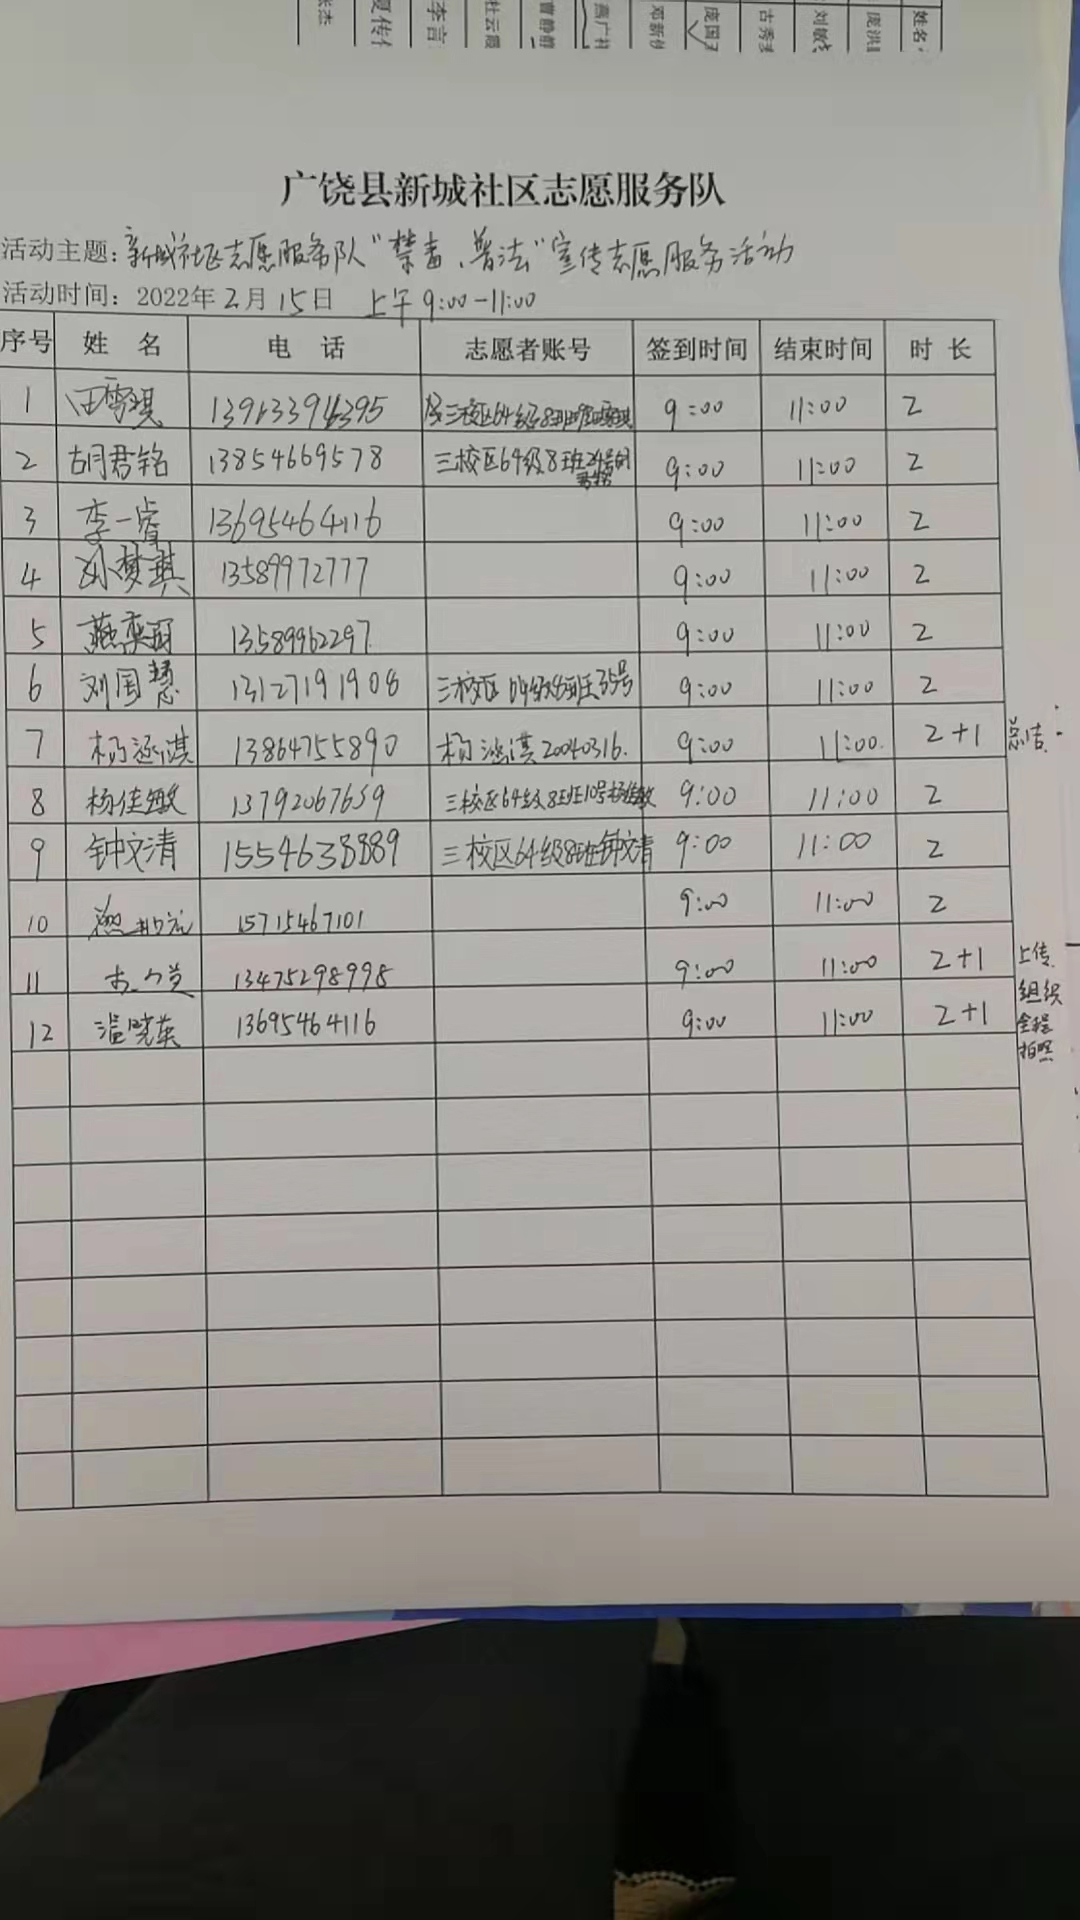 张杰 夏传 李言 杜云霞 曹静静 燕广 邓新 庞国 古秀 刘敏 庞洪 姓名
广饶县新城社区志愿服务队
活动主题：新城社区志愿服务队“禁毒、普法”宣传志愿服务活动
活动时间：2022年2月15日 上午9:00-11:00
序号 姓名 电话 志愿者账号 签到时间 结束时间 时长
1 田雪琪 三校区64级8班 9:00 11:00 2
2 胡君铭 13854669578 三校区64级8班 9:00 11:00 2
3 李一睿 13695464116 9:00 11:00 2
4 孙梦琪 13589972777 9:00 11:00 2
5 燕奕 13589962297 9:00 11:00 2
6 刘国慧 13127191908 三校区64级8班35号 9:00 11:00 2
7 杨涵淇 13864755890 杨涵淇20040316. 9:00 11:00. 2+1 总结.
8 杨佳敏 13792067659 三校区64级8班10号杨佳敏 9:00 11:00 2
9 钟文清 15546388889 三校区64级8班钟文清 9:00 11:00 2
10 15715467101 9:00 11:00 2
11 13475298998 9:00 11:00 2+1 上传.
12 温晓英 13695464116 9:00 11:00 2+1 组织
全程
拍照